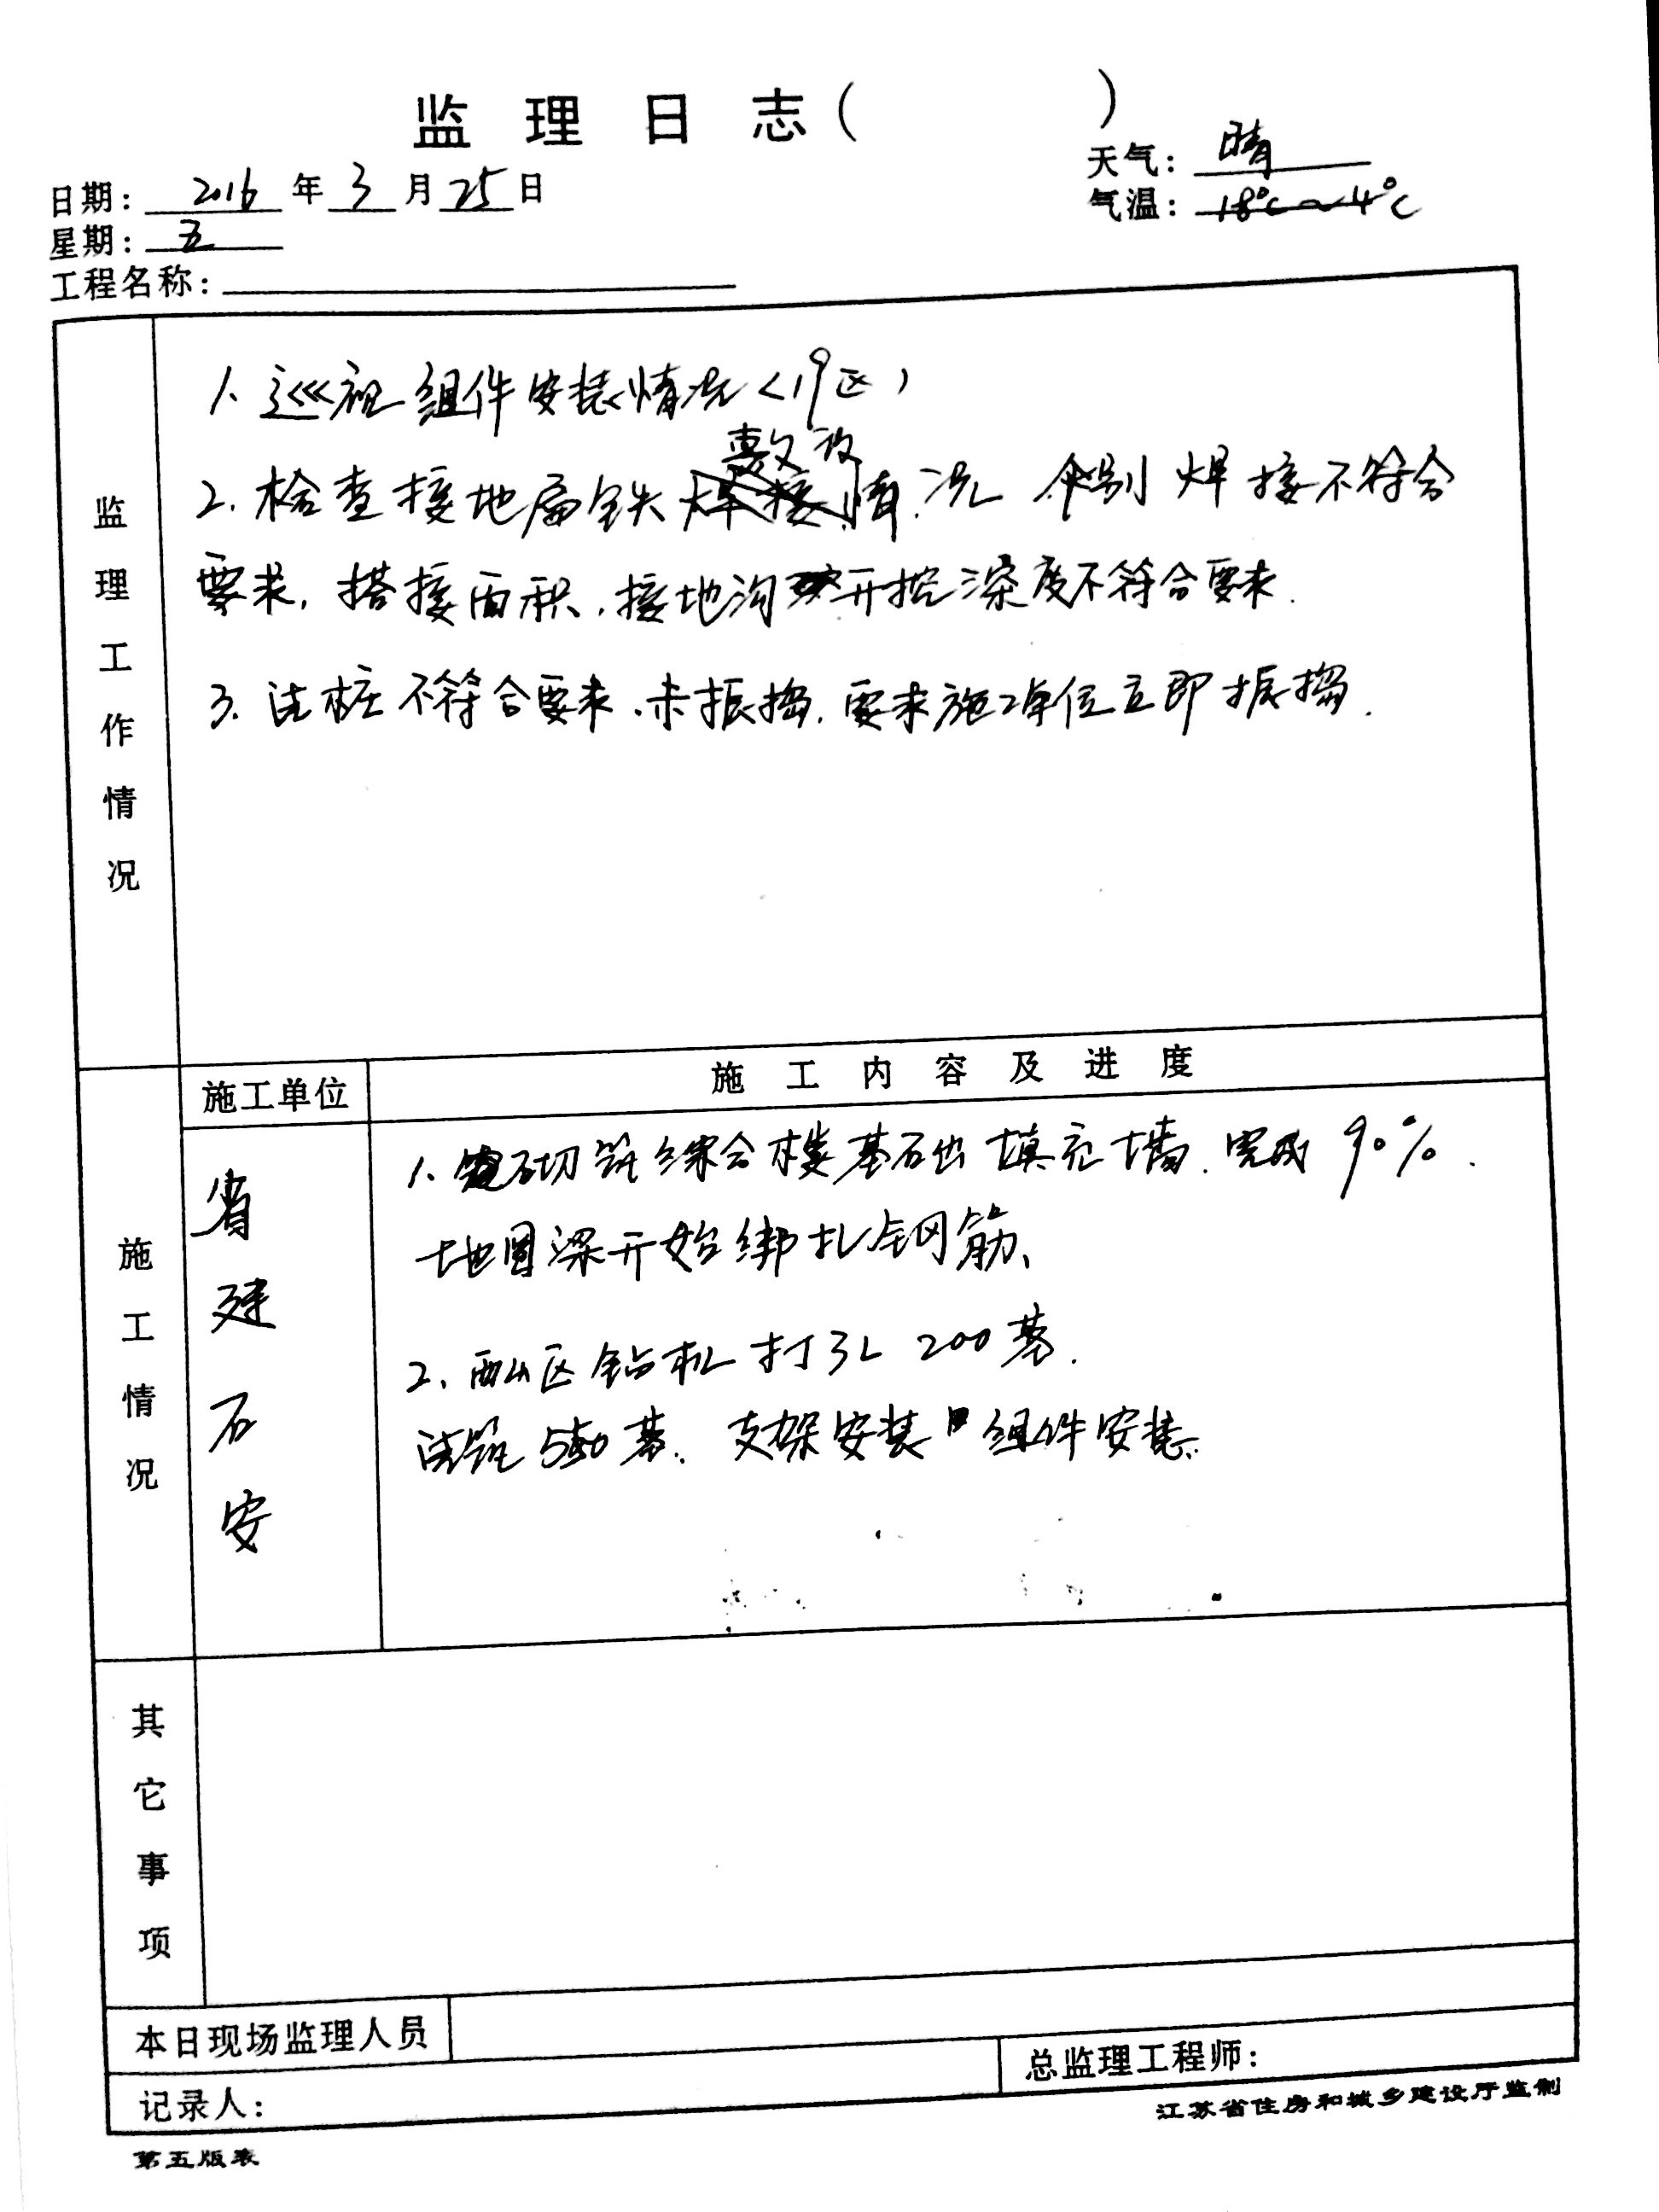 监理日志(　　)
天气：晴
日期：2016年3月25日
气温：18℃~4℃
星期：五
工程名称：
监理工作情况
1.巡视组件安装情况<19区>
2.检查接地扁铁敷设情况 个别焊接不符合
要求，搭接面积，接地沟开挖深度不符合要求.
3.浇桩不符合要求.未振捣.要求施工单位立即振捣.
施工单位
施工内容及进度
施工情况
省建石安
1.砌筑综合楼基础填充墙.完成90%.
地圈梁开始绑扎钢筋、
2、西山区钻机打孔200基.
浇筑550基.支架安装 组件安装.
其它事项
本日现场监理人员
总监理工程师：
记录人：
江苏省住房和城乡建设厅监制
第五版表